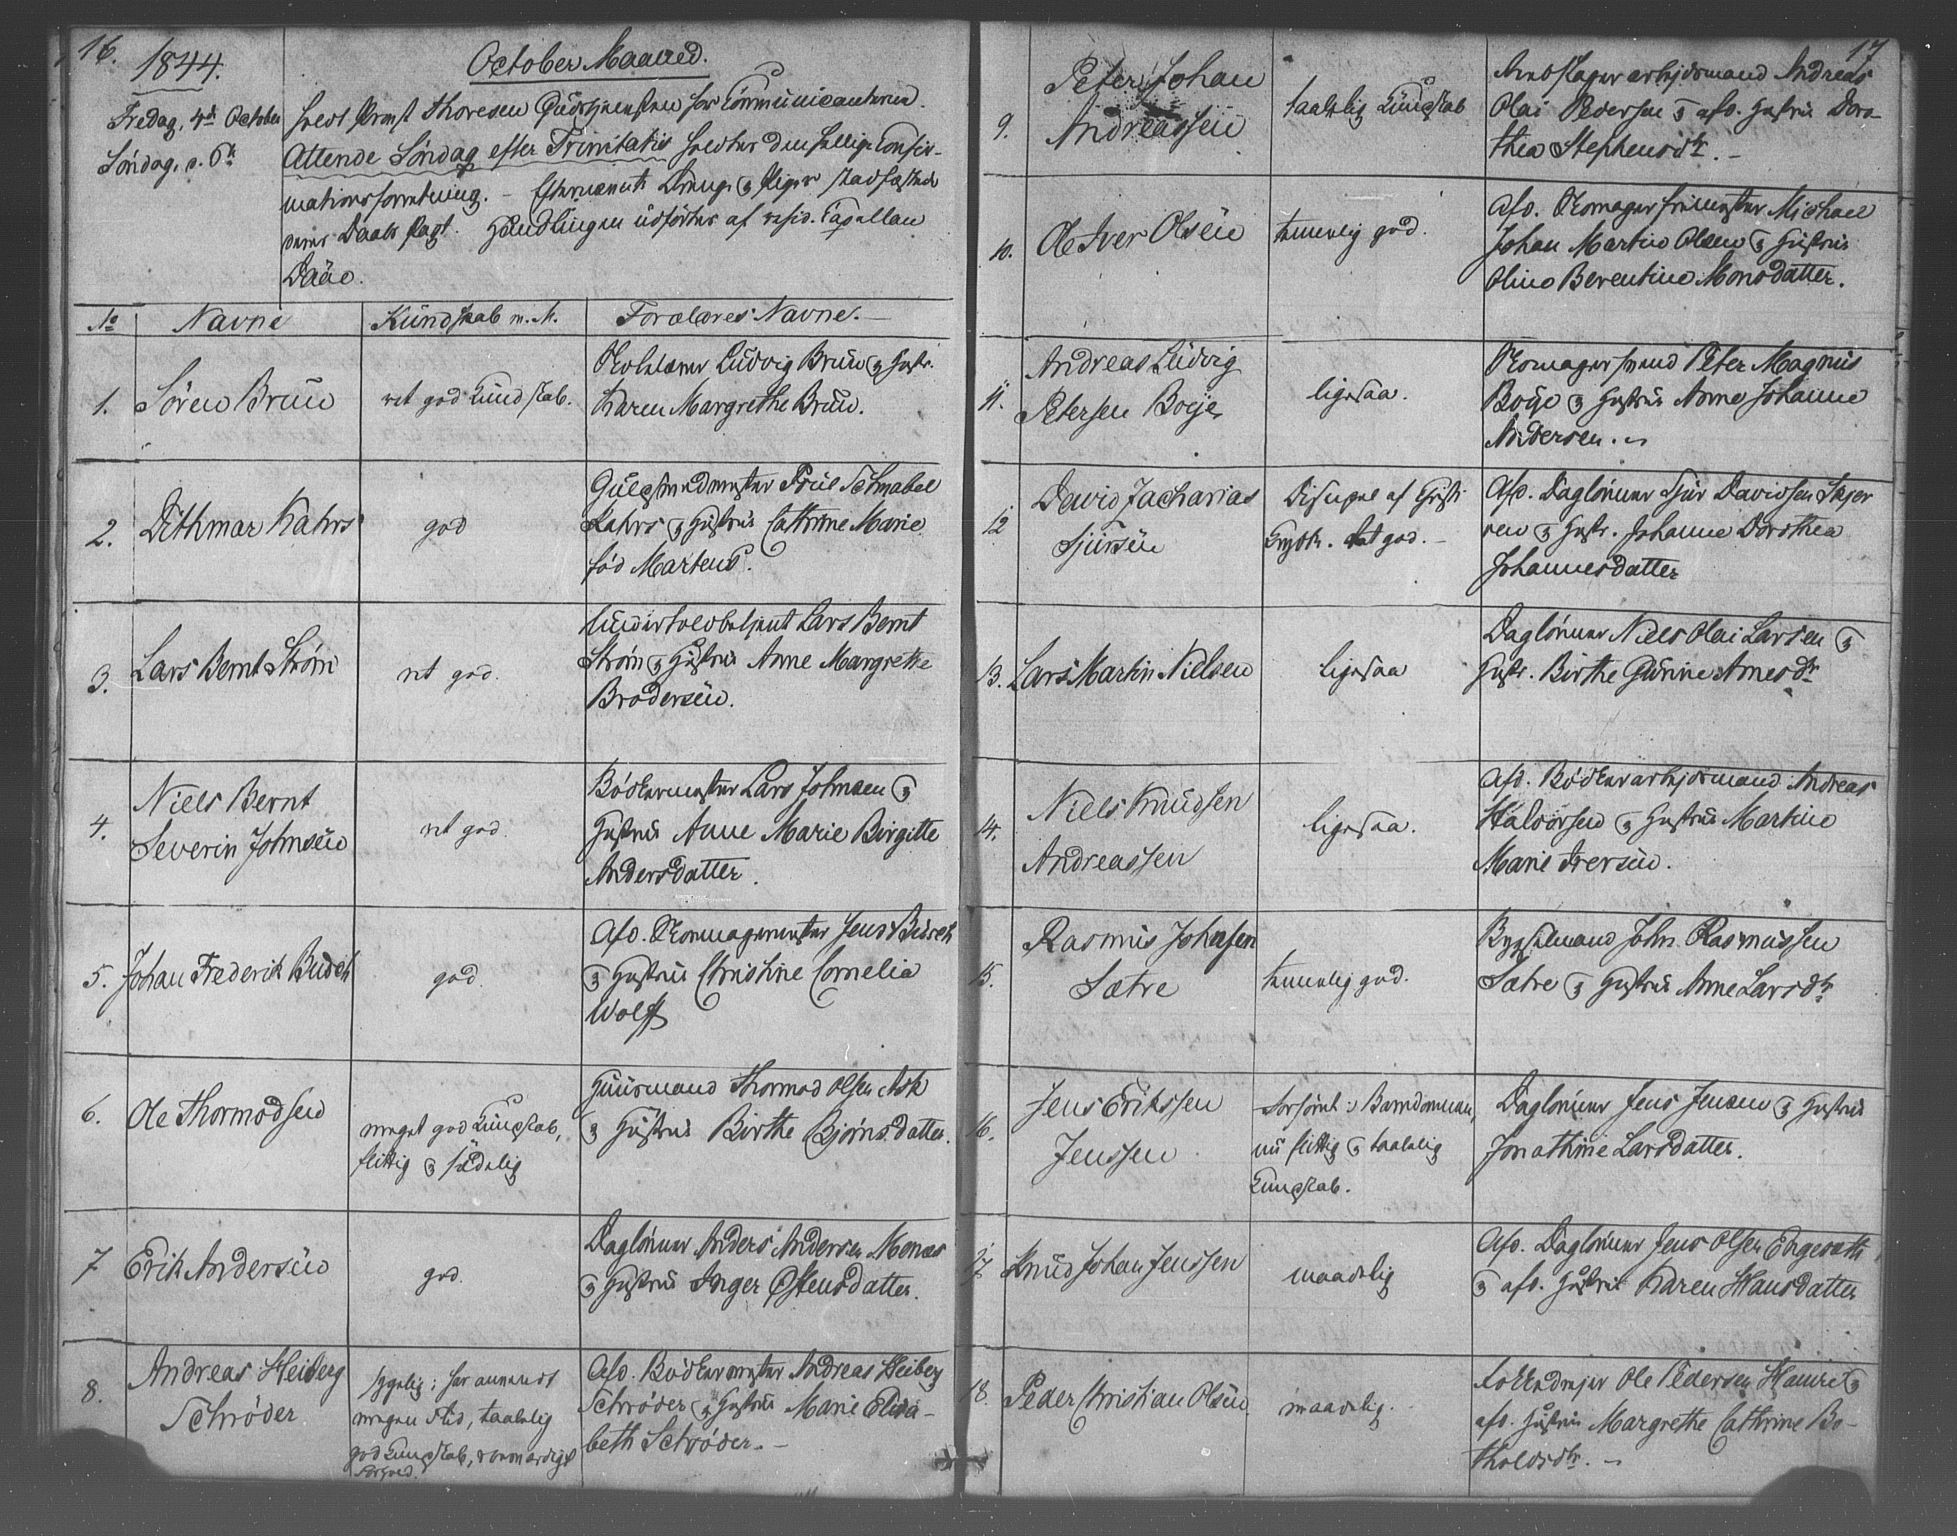 16.
1844.
October Maaned.
Fredag, 4de October
holdt Provst Thoresen Gudstjenesten for Communicanterne.
Søndag, d. 6te
Attende Søndag efter Trinitatis holdtes den sædlige Confir-
mationsforretning. - Efternævnte Drenge og Piger stadfæstede
deres Daabs Pagt. Handlingen udførtes af resid. Capellan
Daae.
No Navne Kundskab m. M. Forældres Navne. -
1. Søren Bruun
ret god Kundskab.
Skolelærer Ludvig Bruun og Hustr.
Karen Margrethe Bruun.
2. Dithmar Kahrs
god
Guldsmedmester Friis Schnabel
Kahrs og Hustrue Cathrine Marie
fød Martens.
3. Lars Bernt Strøm
ret god.
Undertoldbetjent Lars Bernt
Strøm og Hustrue Anne Margrethe
Brodersen.
4. Niels Bernt
Severin Johnsen
ret god.
Bødkermester Lars Johnsen og
Hustrue Anne Marie Birgitte
Andersdatter.
5. Johan Frederik Büdch
god.
Afd. Skomagermester Jens Büdch
og Hustrue Christine Cornelia
Wolff
6. Ole Thormodsen
meget god Kundskab,
flittig og sædelig
Huusmand Thormod Olsen Ask
og Hustrue Birthe Bjørnsdatter.
7 Erik Andersen
god.
Dagløner Anders Andersen Monæs
og Hustrue Inger Østensdatter.
8. Andreas Heiberg
Schrøder
sygelig; har anvendt
megen Flid, taalelig
god Kundskab,
Afd. Bødkermester Andreas Heiberg
Schrøder og Hustrue Marie Elisa-
beth Schrøder. -
17
9. Peter Johan
Andreassen
taalelig Kundskab
arbejdsmand Andreas
Olai Pedersen og afd. Hustrue Doro-
thea Stephensdtr. -
10. Ole Iver Olsen
temmelig god.
Afd. Skomagerfrimester Michael
Johan Martin Olsen og Hustrue
Oline Berentine Monsdatter.
11. Andreas Ludvig
Petersen Boye
ligesaa.
Skomagersvend Peter Magnus
Boye og Hustrue Anne Johanne
Andersen.
12 David Zacharias
Sjursen
Discipel af Christi
Krybbe. ret god. -
Afd. Dagløner Sjur Davidsen Skjer
ven og Hustr. Johanne Dorothea
Johannesdatter
13. Lars Martin Nielsen
ligesaa
Dagløner Niels Olai Larsen og
Hustr. Birthe Gurine Arnesdtr
14. Niels Knudsen
Andreassen
ligesaa.
Afd. Bødkerarbejdsmand Andreas
Halvorsen og Hustrue Martine
Marie Iversen.
15. Rasmus Johnsen
Sætre
temmelig god.
Bygselmand John Rasmussen
Sætre og Hustrue Anne Larsdtr
16. Jens Erikssen
Jenssen
forsømt i Barndommen,
nu flittig og taalelig
Kundskab.
Dagløner Jens Jensen og Hustrue
Jonathine Larsdatter.
17 Knud Johan Jenssen
maadelig
Afd. Dagløner Jens Olsen Engesæth
og afd. Hustrue Karen Hansdatter
18. Peder Christian Olsen
maadelig.
Ole Pedersen Hamre og
afd. Hustrue Margrethe Cathrine Bo-
tholdsdtr. -